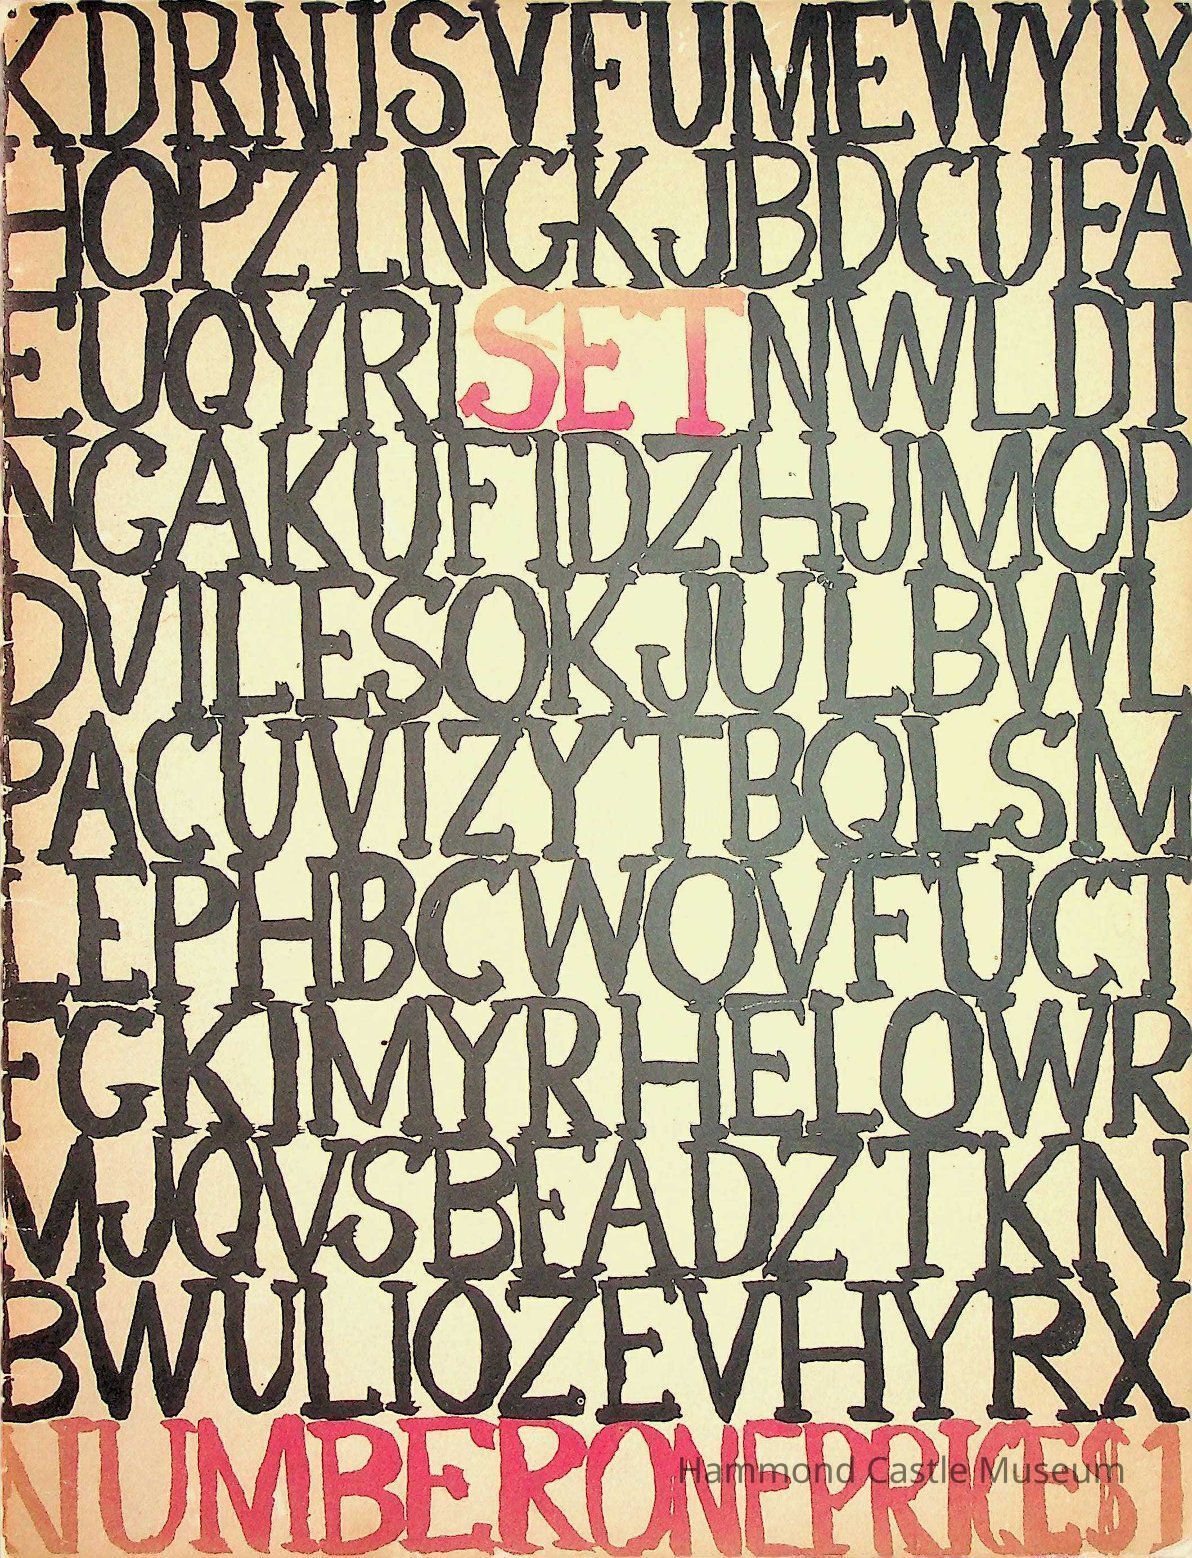 KDRNISVFUMEWYIX
HOPZLNGKJBDCUFA
EUQYRISETNWLDI
NGAKUFIDZHJMOP
DVILESOKJULBWL
PACUVIZYTBQLSM
LEPHBCWOVFUCT
FGKIMYRHELOWR
MJQVSBEADZTKN
BWULIOZEVHYRX
NUMBERONEPRICE$1
Hammond Castle Museum